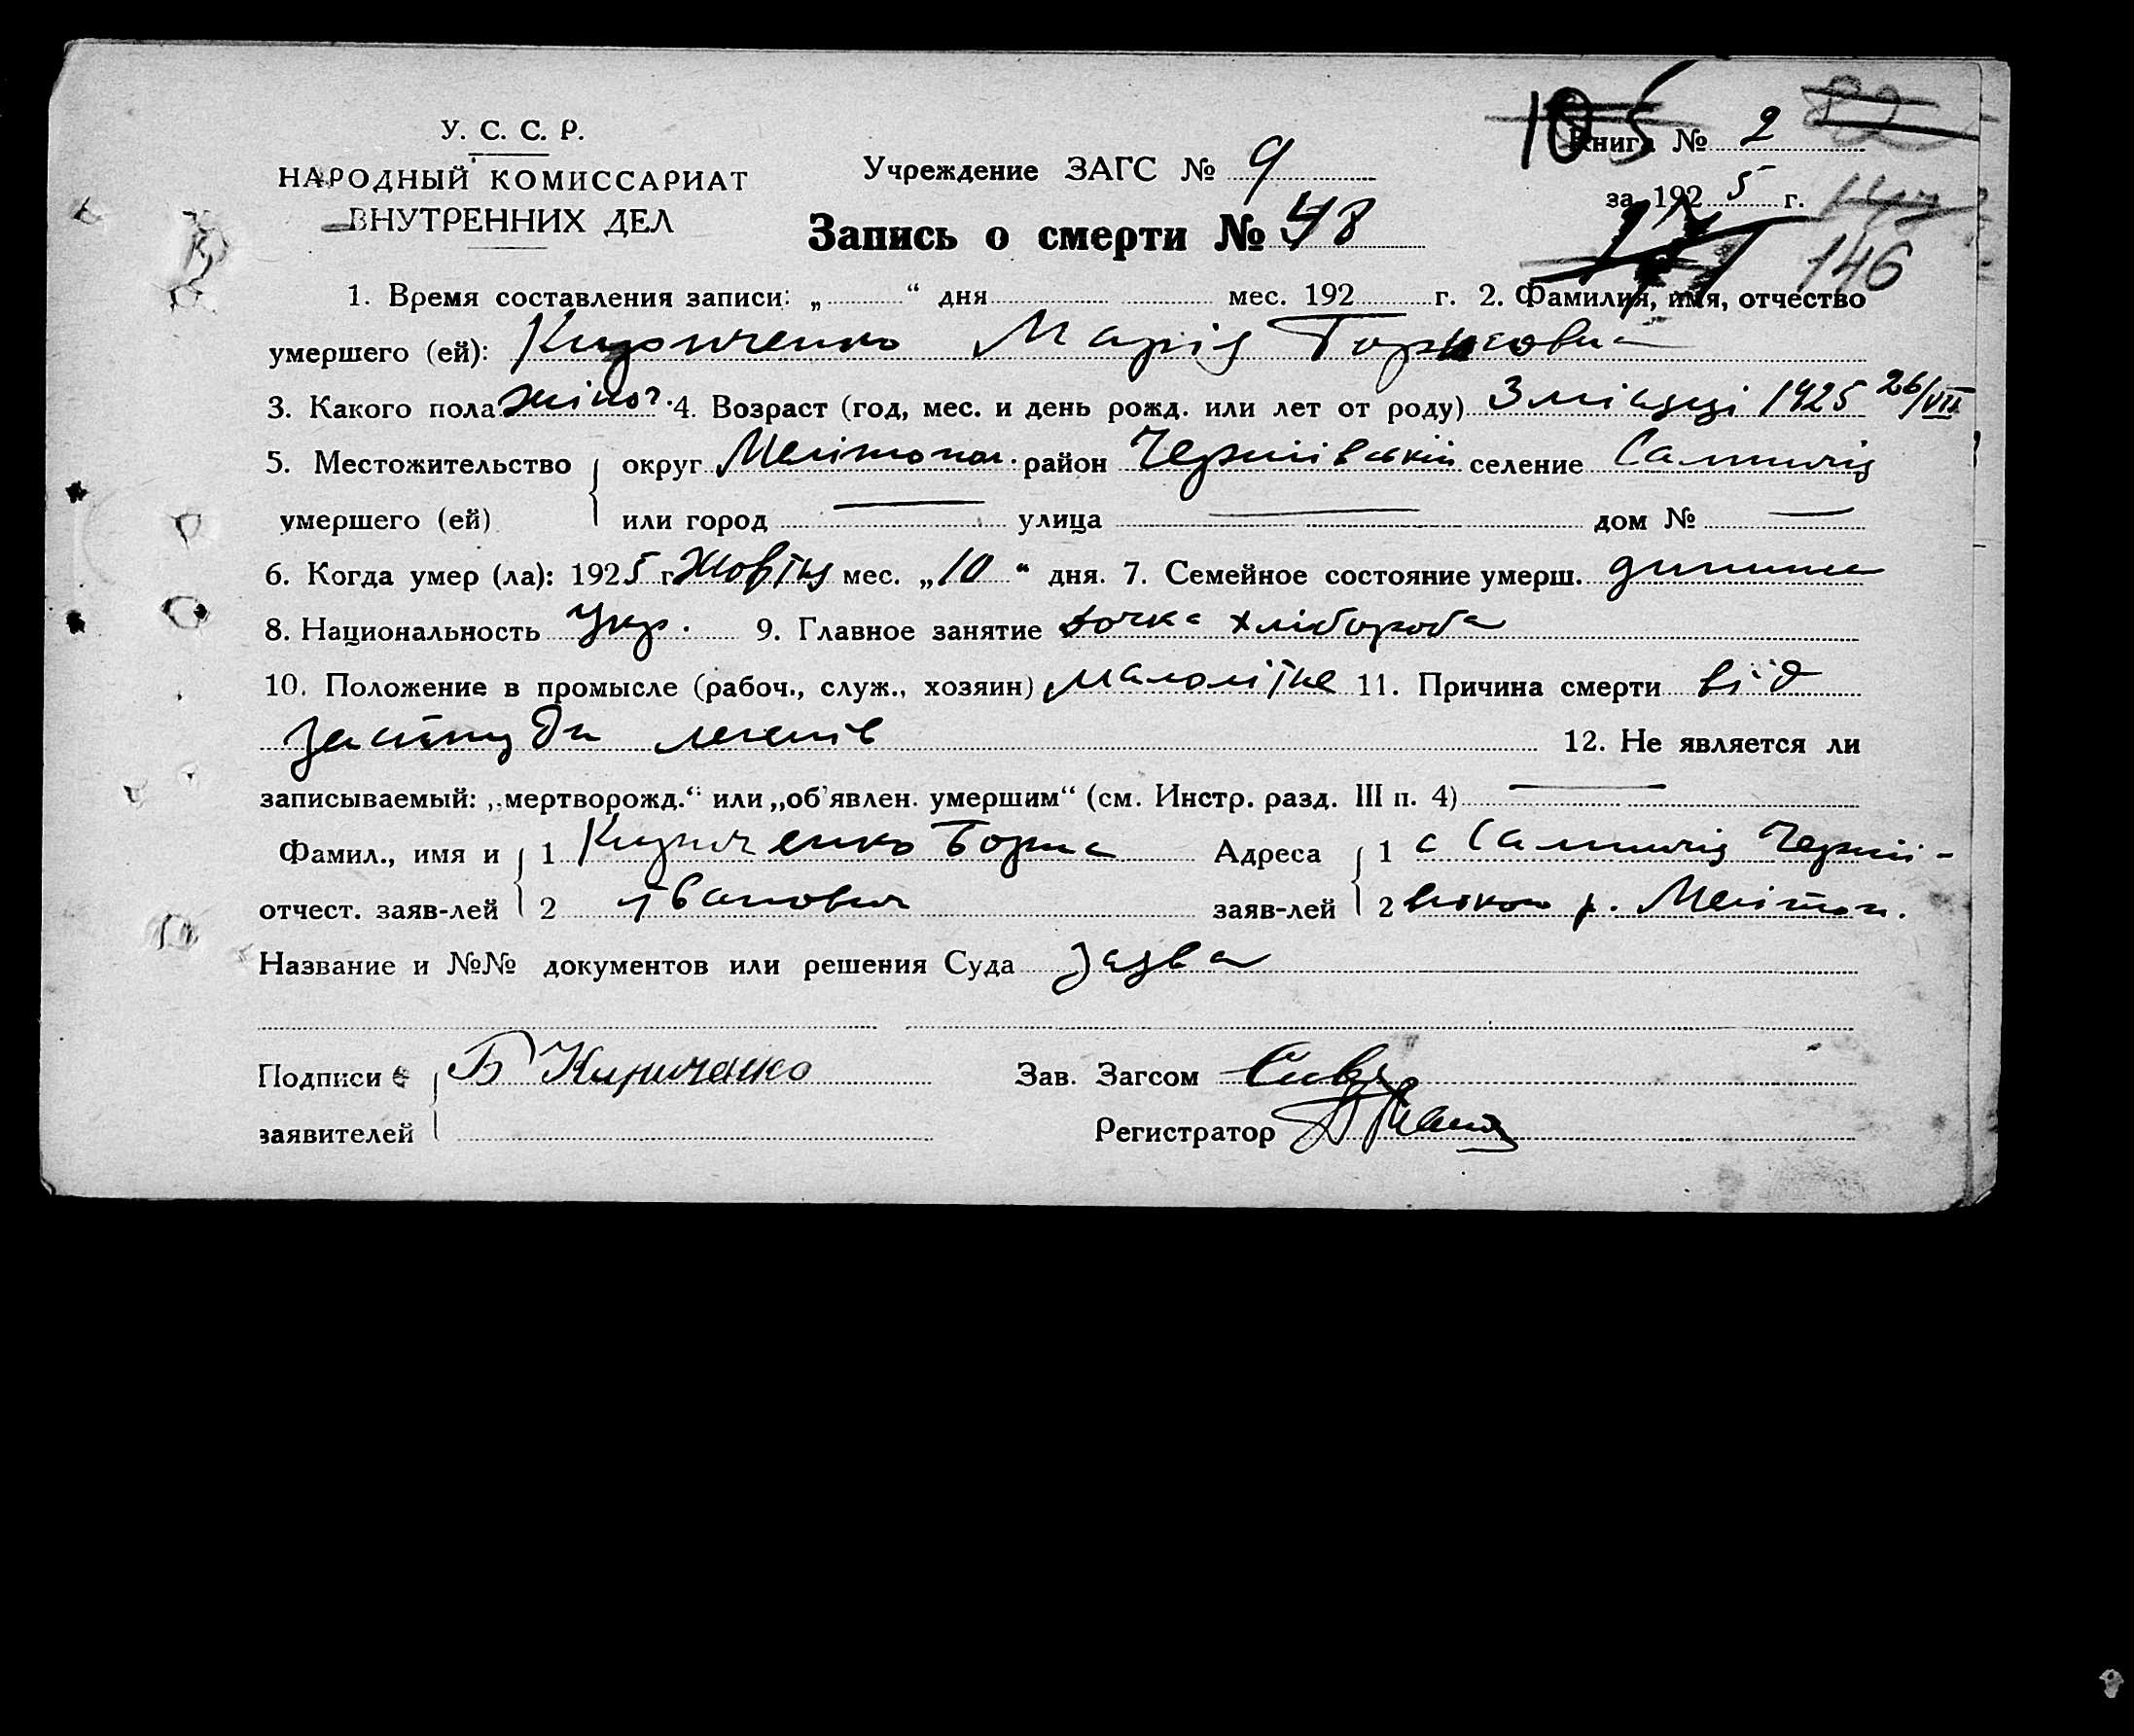 У. С. С. Р.
НАРОДНЫЙ КОМИССАРИАТ
ВНУТРЕННИХ ДЕЛ
Учреждение ЗАГС № 9
Книга № 2
за 1925 г.
146
Запись о смерти № 48
1. Время составления записи: „ “ дня мес. 192 г. 2. Фамилия, имя, отчество
умершего (ей): Кириченко Марія Борисовна
3. Какого пола жіноч. 4. Возраст (год, мес. и день рожд. или лет от роду) 3 місяці 1925 26/VII
5. Местожительство округ Мелітопол. район Чернігівський селение Салтичія
умершего (ей) или город — улица — дом № —
6. Когда умер (ла): 1925 г. Жовтня мес. „10“ дня. 7. Семейное состояние умерш. дитина
8. Национальность Укр. 9. Главное занятие дочка хлібороба
10. Положение в промысле (рабоч., служ., хозяин) малолітне 11. Причина смерти від
застуди легенів 12. Не является ли
записываемый: „мертворожд.“ или „об'явлен. умершим“ (см. Инстр. разд. III п. 4) —
Фамил., имя и 1 Кириченко Борис Адреса 1 с Салтичія Черні-
отчест. заяв-лей 2 Іванович заяв-лей 2 р. Мелітоп.
Название и №№ документов или решения Суда заява
Подписи Б Кириченко Зав. Загсом
заявителей Регистратор